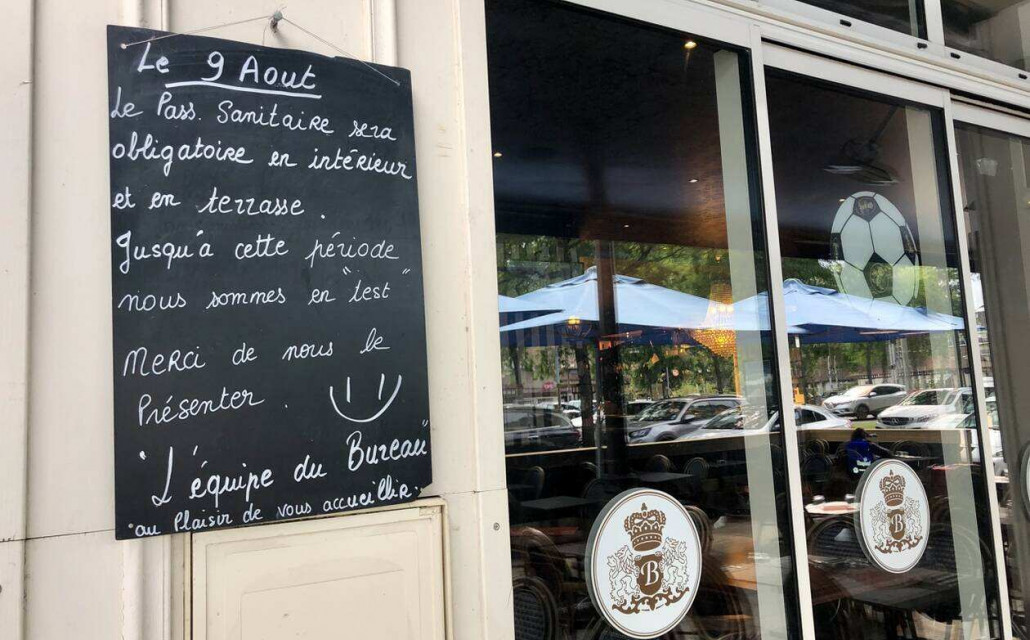 Le 9 Aout
Le Pass. Sanitaire sera
obligatoire en intérieur
et en terrasse.
Jusqu'à cette période
nous sommes en "test"
Merci de nous le
Présenter.
"L'équipe du Bureau"
"au Plaisir de Nous accueillir.
B
B